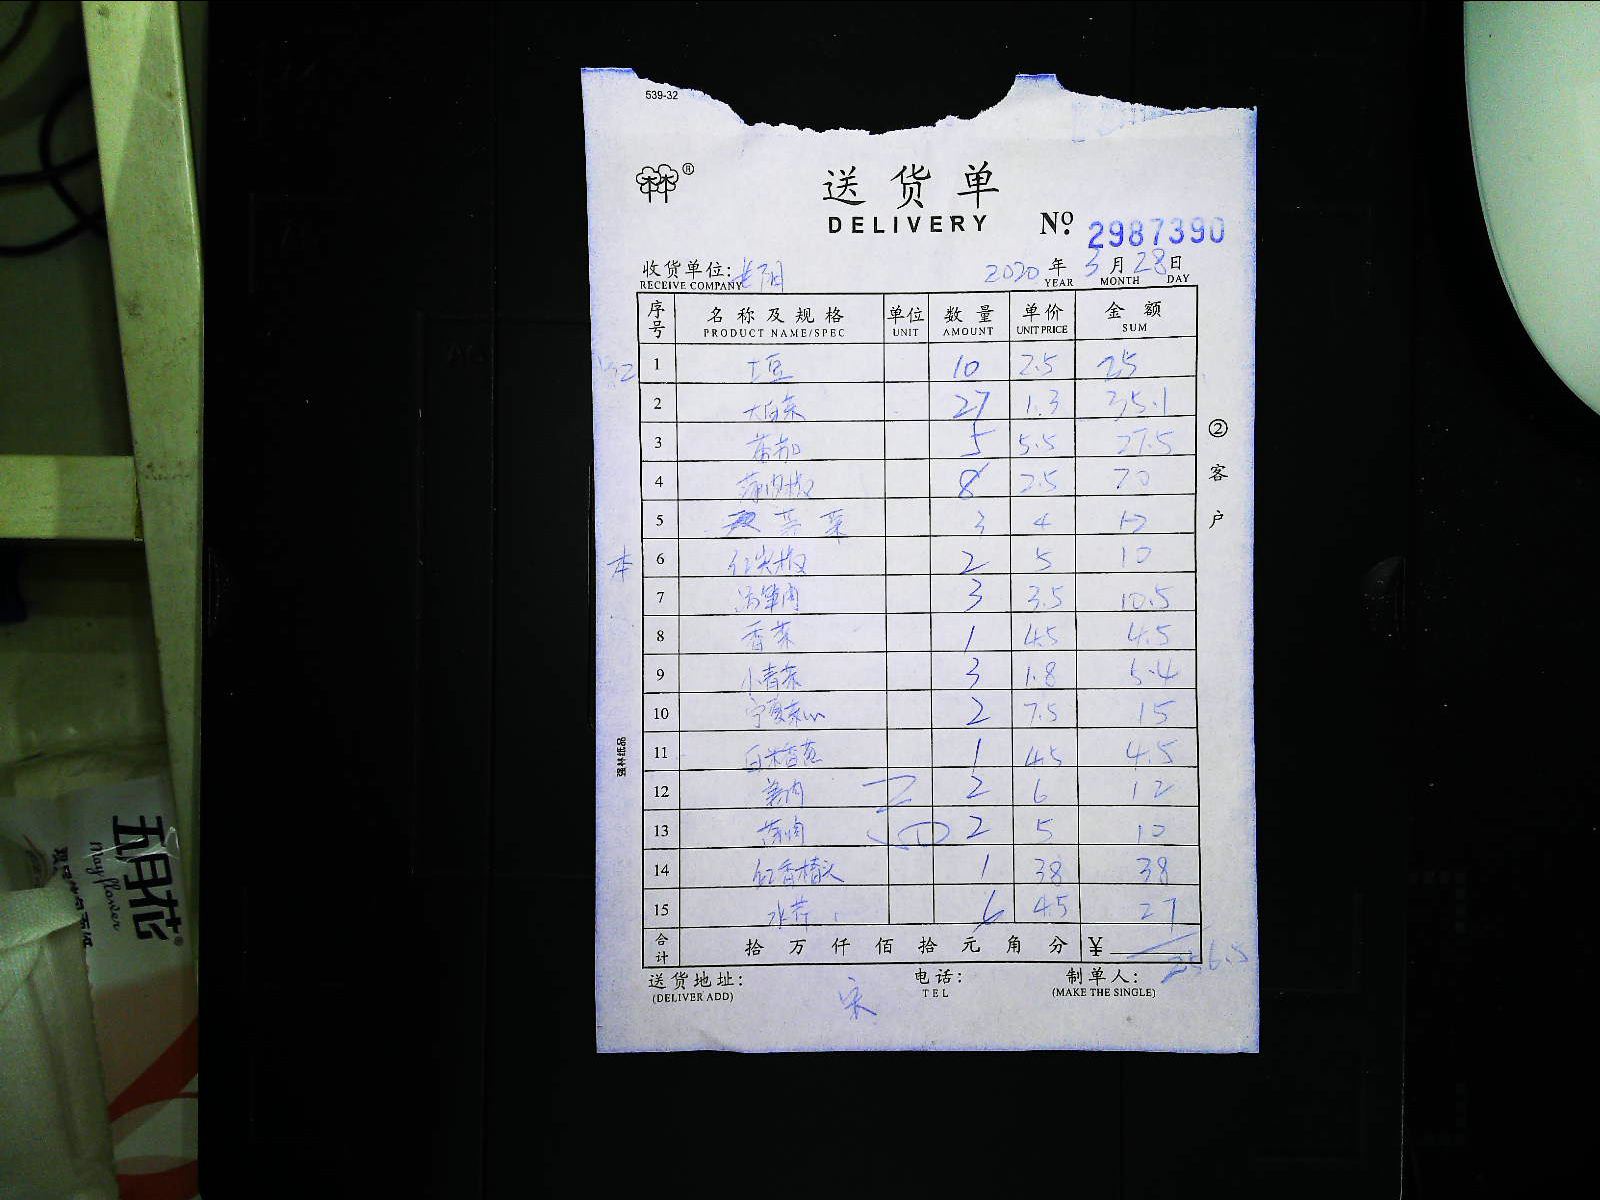 539-32
®
送货单
DELIVERY
Nº 2987390
收货单位:
RECEIVE COMPANY
2020 年 3 月 28 日
YEAR MONTH DAY
序号 名称及规格 单位 数量 单价 金额
PRODUCT NAME/SPEC UNIT AMOUNT UNIT PRICE SUM
1 土豆 10 2.5 25
2 大白菜 27 1.3 35.1
3 番茄 5 5.5 27.5
4 8 2.5 20
5 3 4 12
6 红尖椒 2 5 10
7 3 3.5 10.5
8 香菜 1 4.5 4.5
9 小青菜 3 1.8 5.4
10 宁夏菜心 2 7.5 15
11 1 4.5 4.5
12 姜肉 2 6 12
13 蒜肉 2 5 10
14 红香椿头 1 38 38
15 水芹 6 4.5 27
合计 拾万仟佰拾元角分 ¥
256.5
送货地址: 电话: 制单人:
(DELIVER ADD) TEL (MAKE THE SINGLE)
宋
②客户
强林纸品
五月花®
Mayflower